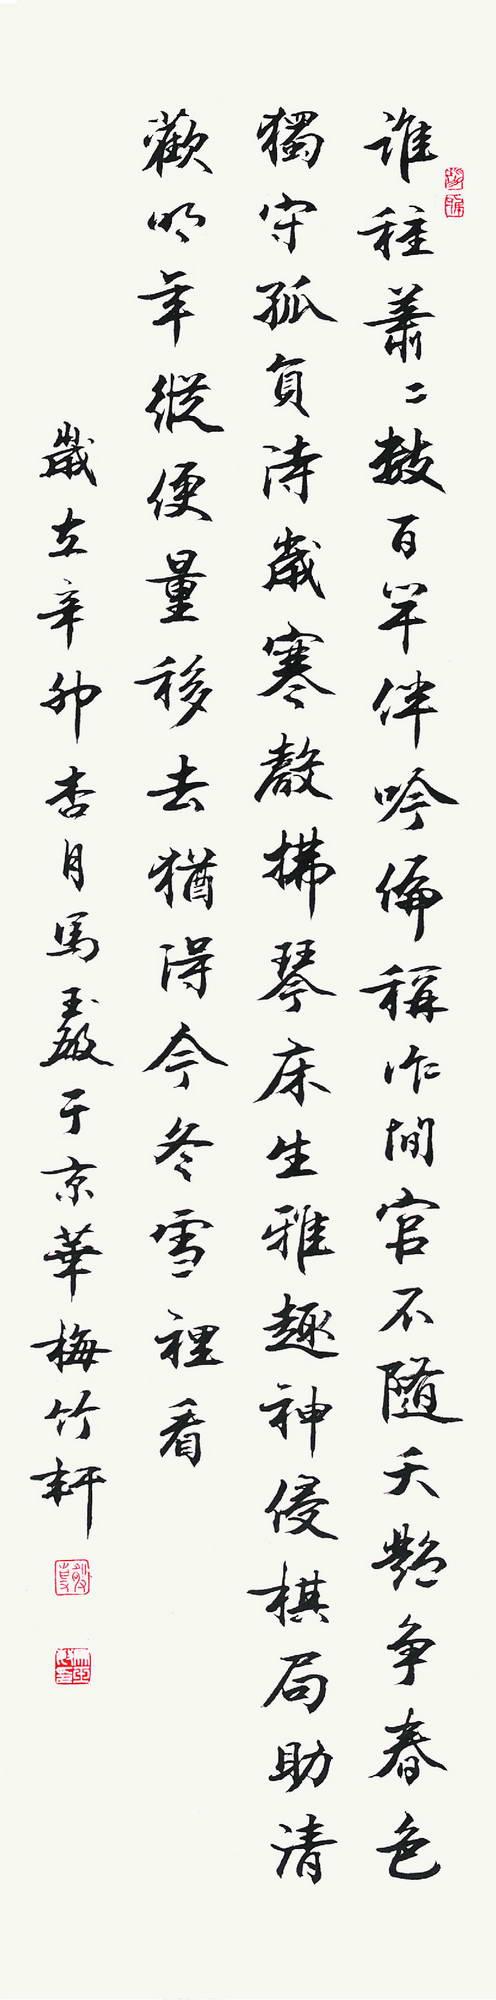 誰種蕭〻數百竿伴吟偏稱作閒官不隨夭艷爭春色
獨守孤貞待歲寒聲拂琴床生雅趣神侵棋局助清
歡明年縱便量移去猶得今冬雪裡看
歲在辛卯杏月馬玉嚴于京華梅竹軒